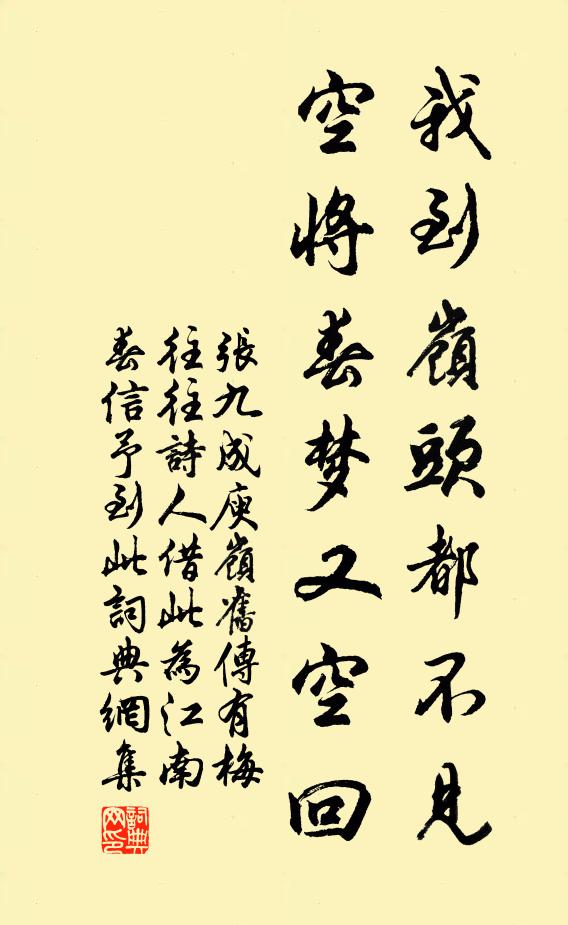 我到嶺頭都不見
空將春梦又空回
張九成庾嶺舊傳有梅
往往詩人借此為江南
春信予到此詞典網集
詞典
网印